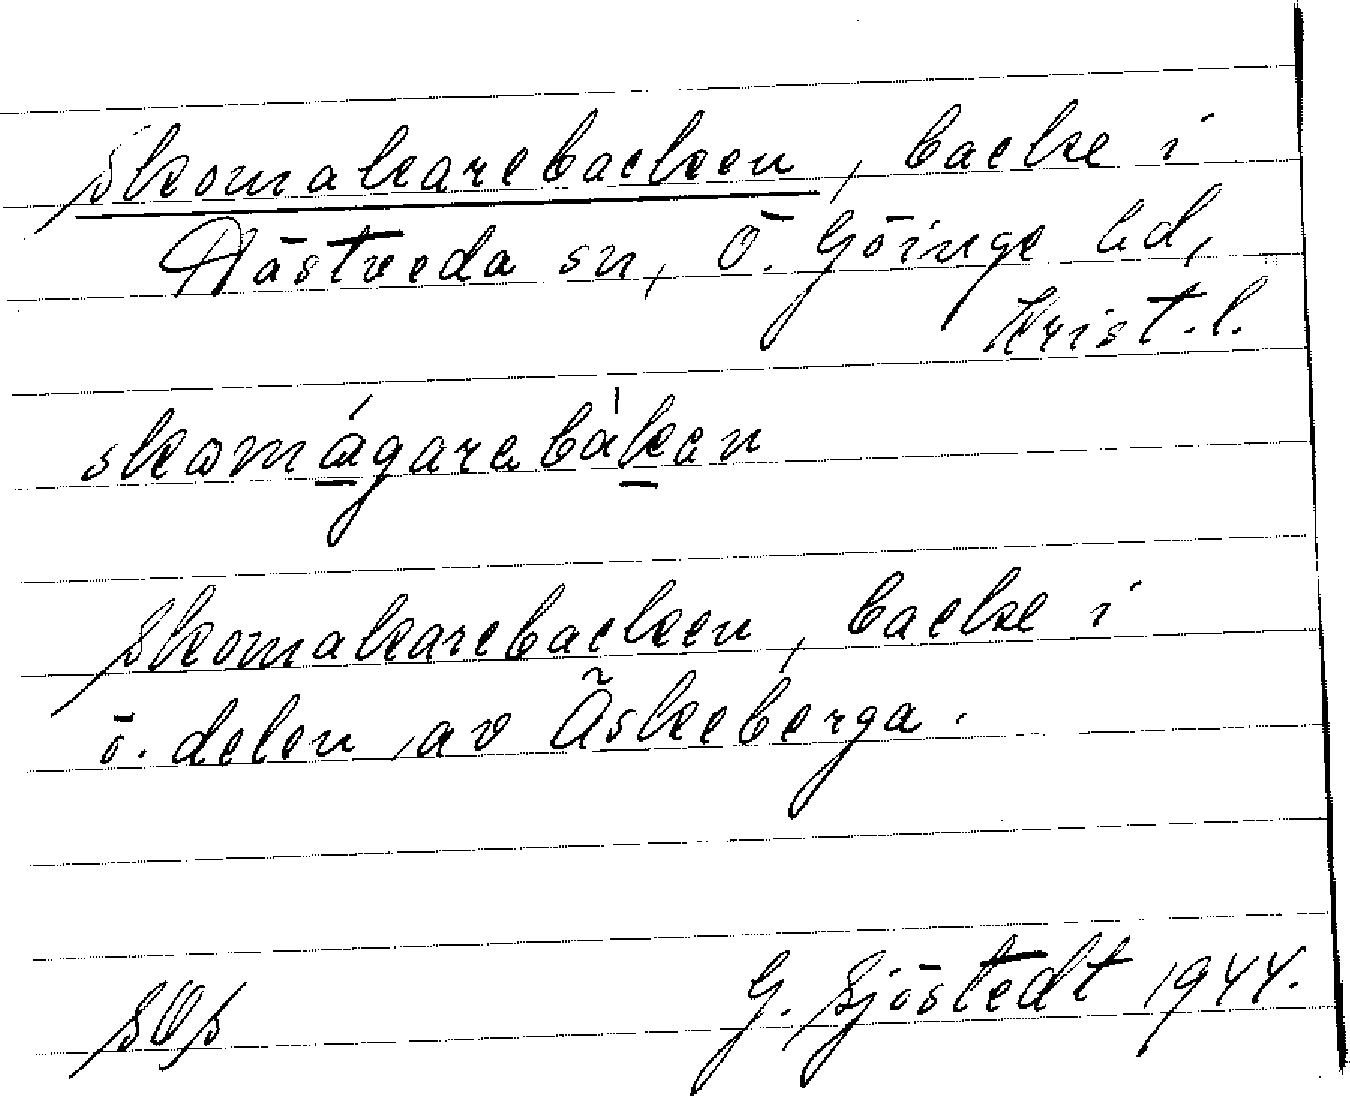 Skomakarebacken, backe i
Hästveda sn, Ö. Göinge hd,
Krist. l.
skomágarebàken
Skomakarebacken, backe i
ö. delen av Äskeberga.
G. Sjöstedt 1944.